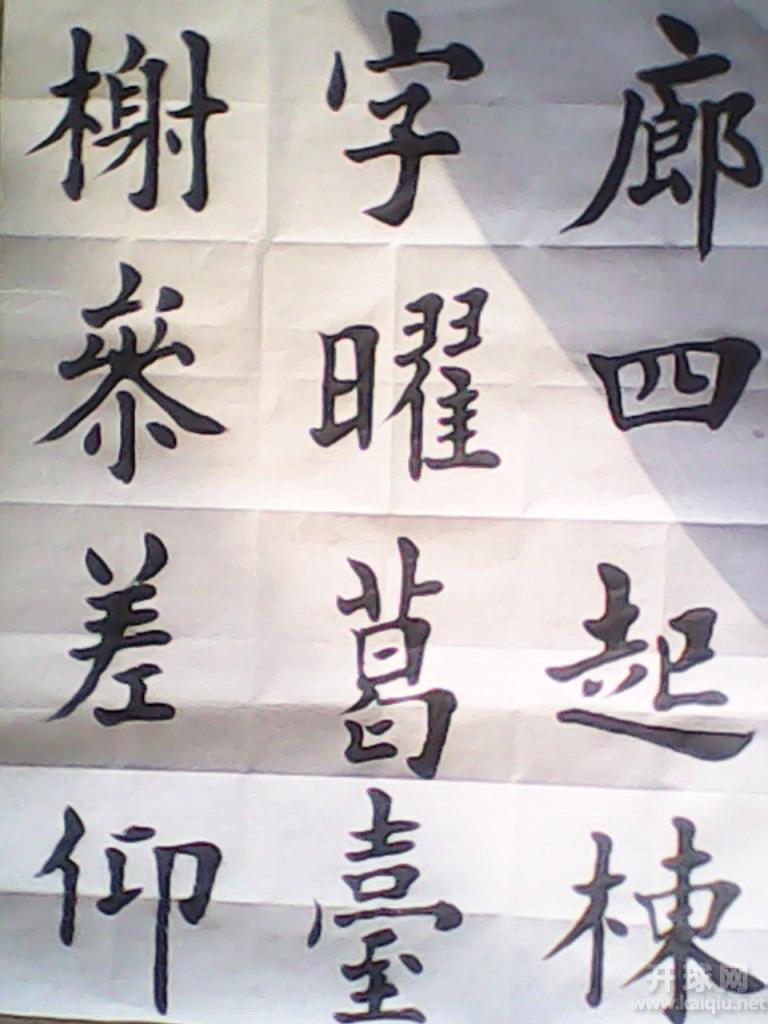 廊四起棟
字曜葛臺
榭叅差仰
开球网
www.kaiqiu.net